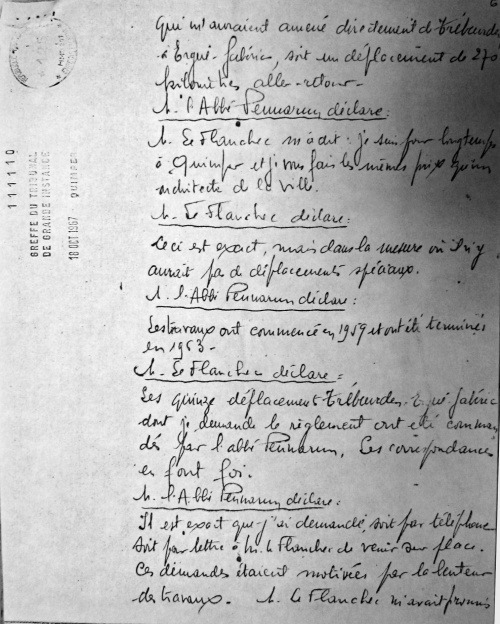 6
qui m'auraient amené directement de Trébeurden
à Ergué-Gabéric, soit un déplacement de 270
kilomètres aller-retour -
M. l'Abbé Pennarun déclare :
M. Le Flanchec m'a dit : je suis pour longtemps
à Quimper et je vous fais les mêmes prix qu'un
architecte de la ville.
M. Le Flanchec déclare :
Ceci est exact, mais dans la mesure où il n'y
aurait pas de déplacements spéciaux.
M. l'Abbé Pennarun déclare :
Les travaux ont commencé en 1959 et ont été terminés
en 1963 -
M. Le Flanchec déclare :
Les quinze déplacements Trébeurden-Ergué-Gabéric
dont je demande le règlement ont été comman
dés par l'abbé Pennarun. Les correspondances
en font foi.
M. l'Abbé Pennarun déclare :
Il est exact que j'ai demandé, soit par téléphone
soit par lettre à M. Le Flanchec de venir sur place.
Ces demandes étaient motivées par la lenteur
des travaux. M. Le Flanchec m'avait promis
111110
GREFFE DU TRIBUNAL
DE GRANDE INSTANCE
18 OCT 1967 QUIMPER